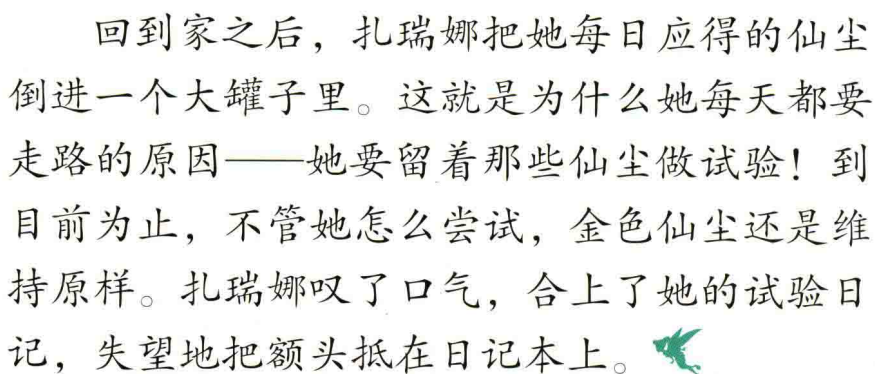 回到家之后，扎瑞娜把她每日应得的仙尘
倒进一个大罐子里。这就是为什么她每天都要
走路的原因——她要留着那些仙尘做试验！到
目前为止，不管她怎么尝试，金色仙尘还是维
持原样。扎瑞娜叹了口气，合上了她的试验日
记，失望地把额头抵在日记本上。